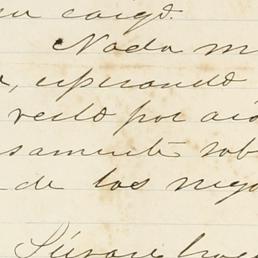 su cargo.
Nada m
, esperando
verlo por aq
samente sob
de los nego
Sírvase